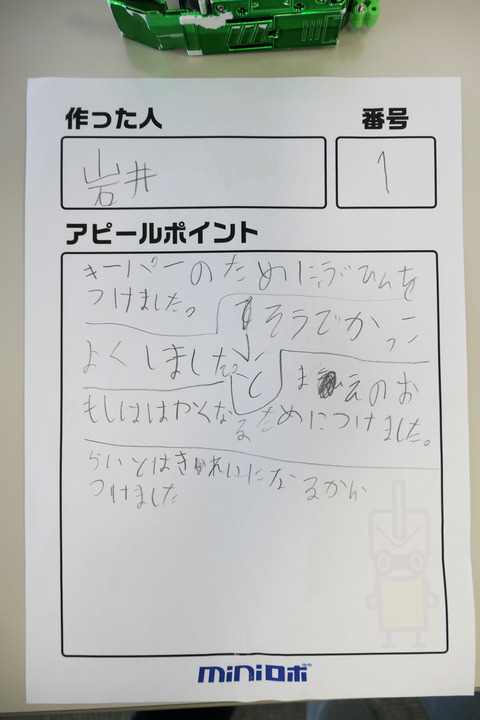 作った人
番号
岩井
1
アピールポイント
キーパーのために
つけました。
そうでかっこ
よくしました。
まえのお
もしははかくなるためにつけました。
らいとはきれいになるかん
つけました
miniロボ